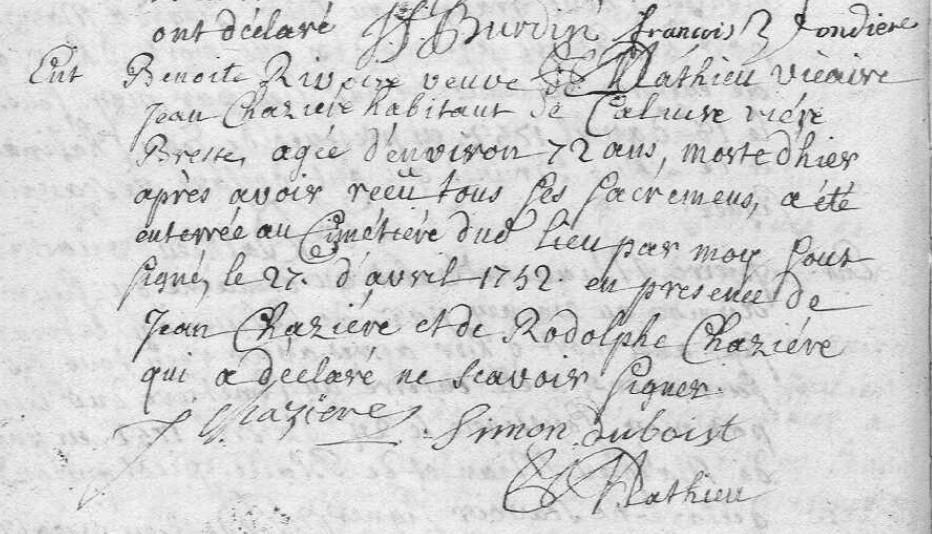 ont déclaré J. Burdin françois Jondiere
Ent Benoite Rivoire veuve de Mathieu vicaire
Jean Chaziere habitant de Caluire viére
Bresse, agée d'environ 72 ans, morte d'hier
après avoir reçu tous ses sacremens, a été
enterrée au Cimétiére dud lieu par moy sous
signé, le 27. d'avril 1752. en presence de
Jean Chaziére et de Rodolphe Chaziére
qui a déclaré ne scavoir signer.
J Chaziere Simon duboist
Mathieu